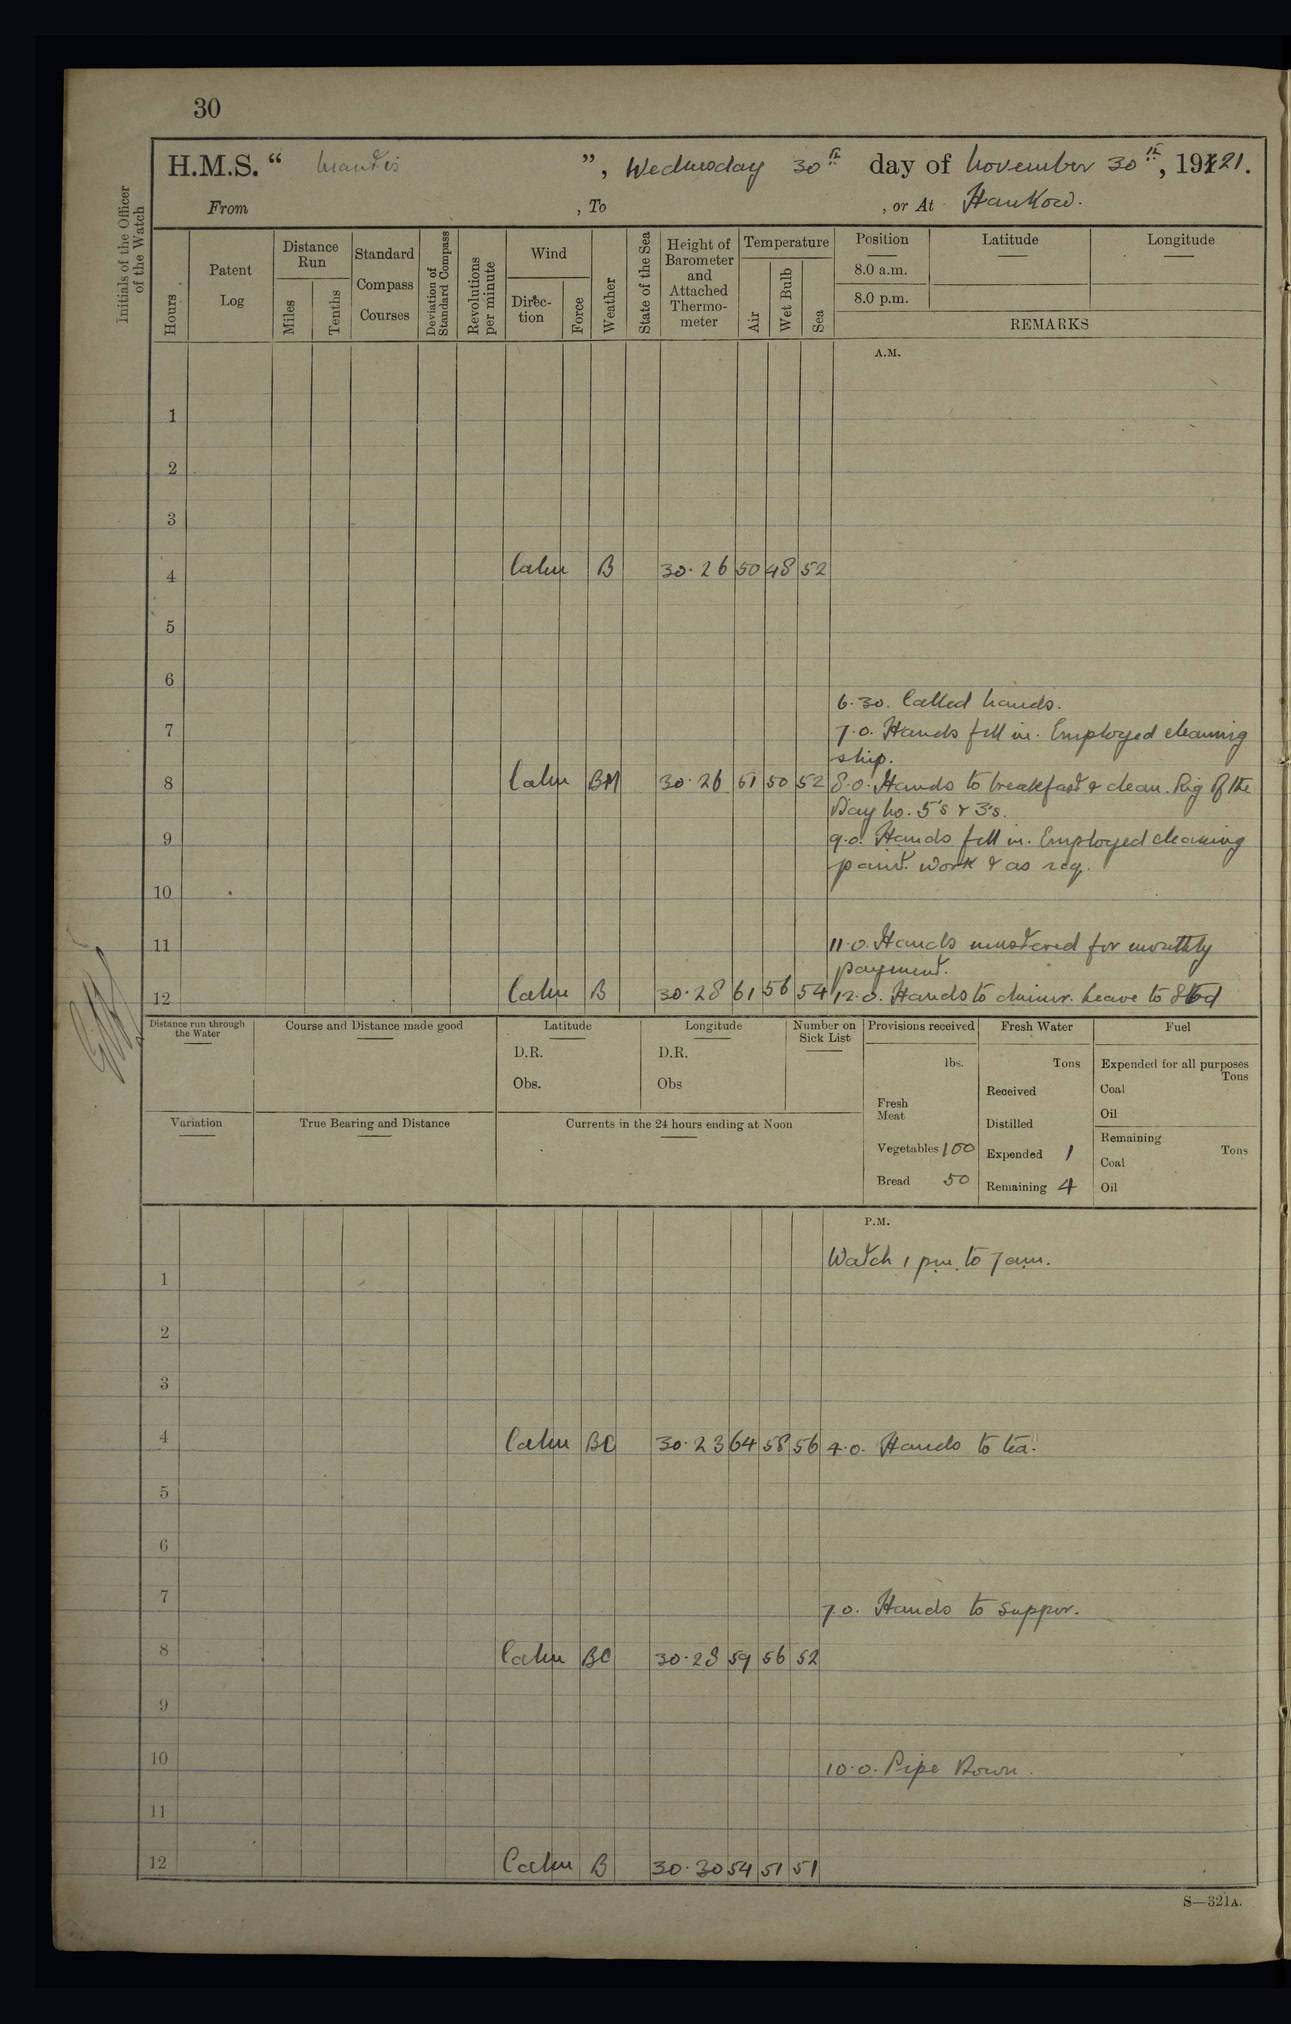 30
H.M.S. “ Mantis ”, Wednesday 30th day of November 30th, 1921.
From , To , or At Hankow.
Initials of the Officer of the Watch
Hours
Patent Log
Distance Run
Miles
Tenths
Standard Compass Courses
Deviation of Standard Compass
Revolutions per minute
Wind
Direction
Force
Weather
State of the Sea
Height of Barometer and Attached Thermometer
Temperature
Air
Wet Bulb
Sea
Position
Latitude
Longitude
8.0 a.m.
8.0 p.m.
REMARKS
A.M.
1
2
3
4 Calm B 30.26 50 48 52
5
6
6.30. Called hands.
7 7.0. Hands fell in. Employed cleaning
ship.
8 Calm BM 30.26 51 50 52 8.0. Hands to breakfast & clean. Rig of the
Day No. 5's & 3's.
9 9.0. Hands fell in. Employed cleaning
paint work & as req.
10
11 11.0. Hands mustered for monthly
payment.
12 Calm B 30.28 61 56 54 12.0. Hands to dinner. Leave to Stbd
Distance run through the Water
Course and Distance made good
Latitude
D.R.
Obs.
Longitude
D.R.
Obs
Number on Sick List
Provisions received
lbs.
Fresh Meat
Vegetables 100
Bread 50
Fresh Water
Tons
Received
Distilled
Expended 1
Remaining 4
Fuel
Expended for all purposes
Tons
Coal
Oil
Remaining
Tons
Coal
Oil
Variation
True Bearing and Distance
Currents in the 24 hours ending at Noon
P.M.
Watch 1 pm. to 7 am.
1
2
3
4 Calm BC 30.23 64 58 56 4.0. Hands to tea.
5
6
7 7.0. Hands to supper.
8 Calm BC 30.28 59 56 52
9
10 10.0. Pipe Down.
11
12 Calm B 30.30 54 51 51
S—321A.